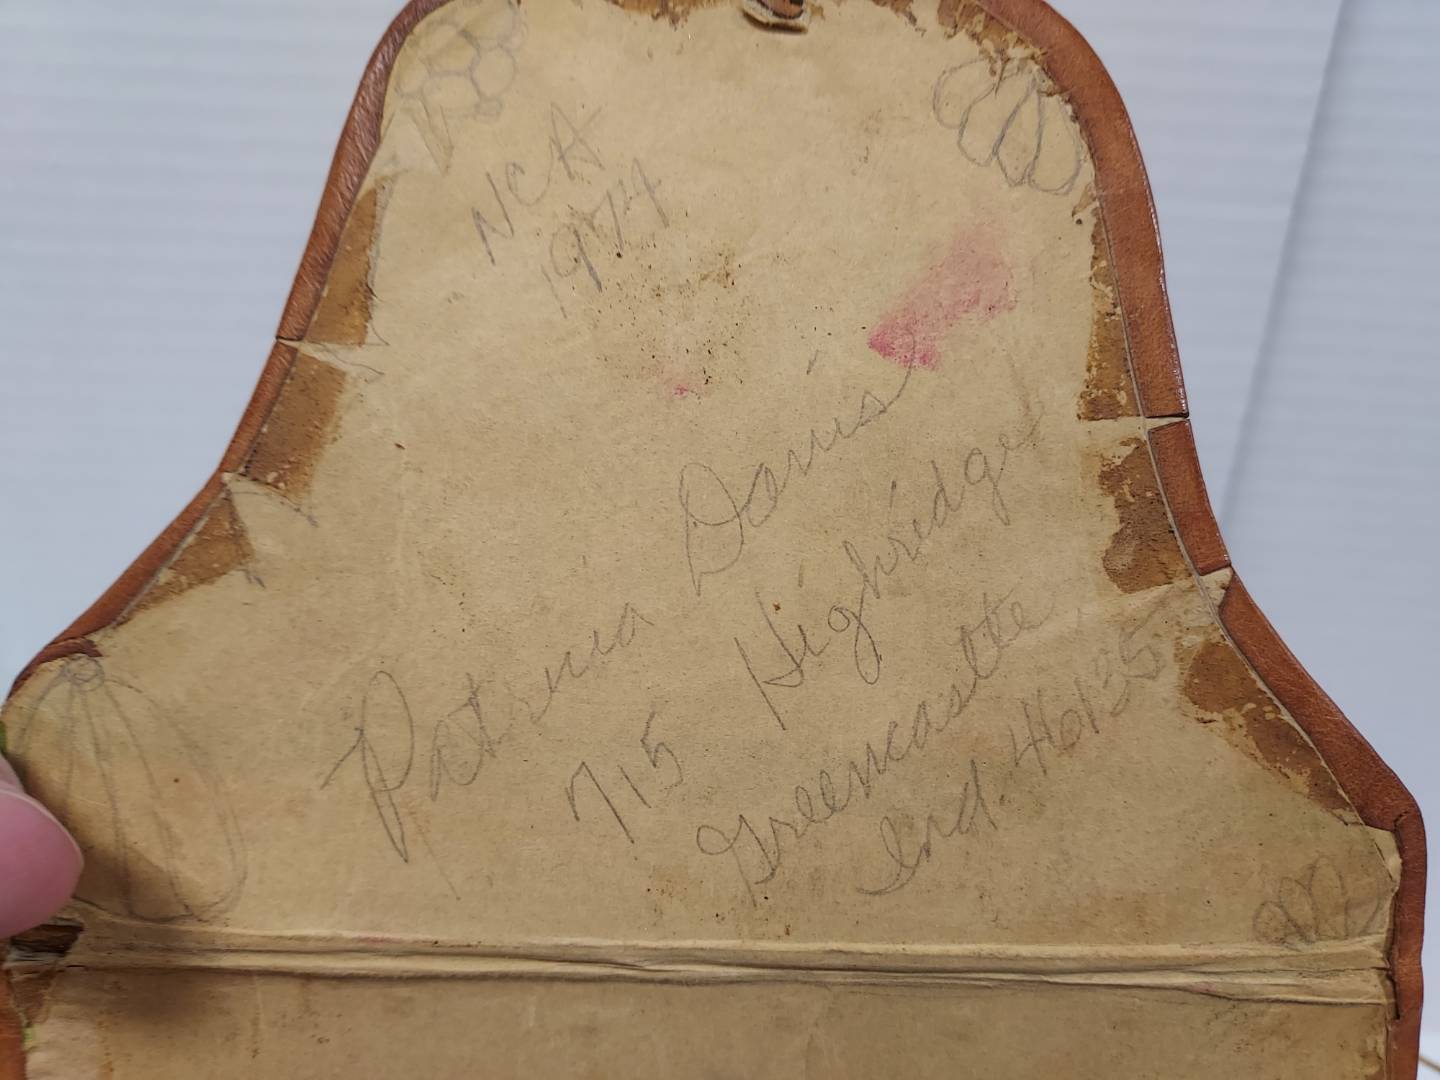 NCA
1974
Patricia Davis
715 Highridge
Greencastle
Ind. 46135